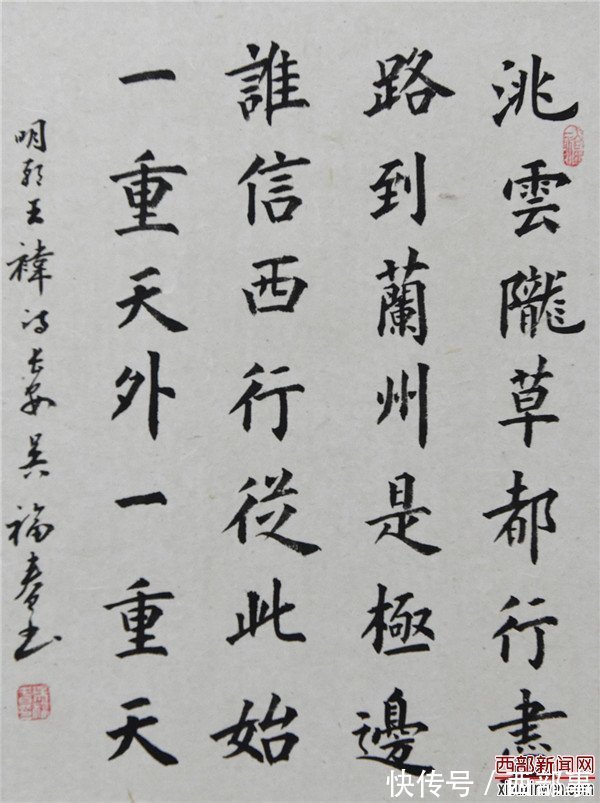 洮雲隴草都行盡
路到蘭州是極邊
誰信西行從此始
一重天外一重天
明朝王褘詩長安吳福春书
西部新闻网
快传号/西部